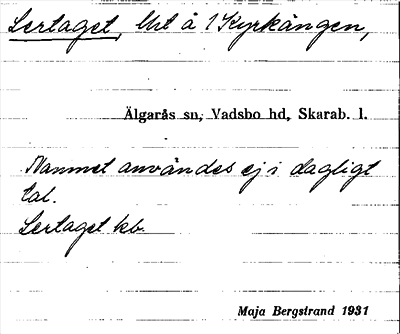 Sertaget, hst å 1 Kyrkängen,
Älgarås sn, Vadsbo hd, Skarab. l.
Namnet användes ej i dagligt
tal.
Sertaget kb.
Maja Bergstrand 1931